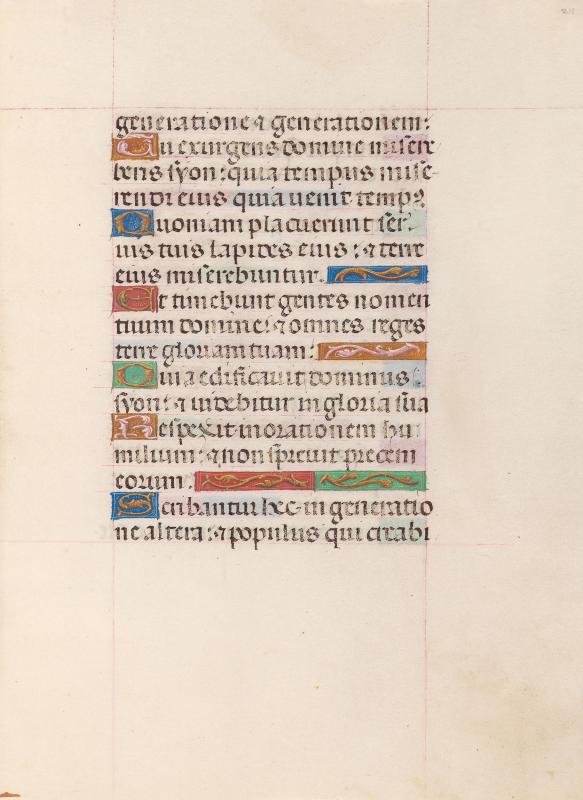 generatione ⁊ generationem:
Tu exurgens domine misere
beris syon: quia tempus mise-
rendi eius quia uenit temp⁹
Quoniam placuerunt ser
uis tuis lapides eius: ⁊ terre
eius miserebuntur.
Et timebunt gentes nomen
tuum domine: ⁊ omnes reges
terre gloriam tuam:
Quia edificauit dominus
syon: ⁊ uidebitur in gloria sua
Respexit in orationem hu
milium: ⁊ non spreuit precem
eorum:
Scribantur hec in generatio
ne altera: ⁊ populus qui creabi